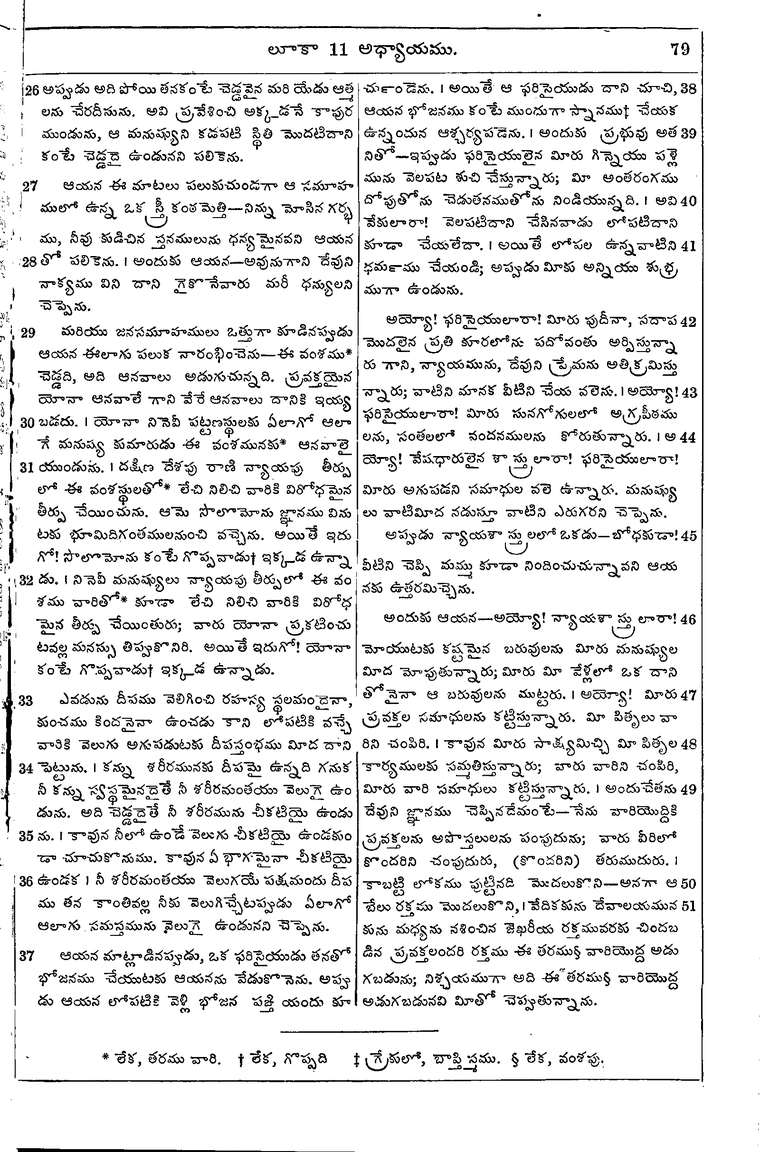 లూకా 11 అధ్యాయము. 79
26 అప్పుడు అది పోయి తనకంటే చెడ్డవైన మరి యేడు ఆత్మ
లను చేరదీసును. అవి ప్రవేశించి అక్కడనే కాపుర
ముండును, ఆ మనుష్యుని కడపటి స్థితి మొదటిదాని
కంటే చెడ్డదై ఉండునని పలికెను.
27 ఆయన ఈ మాటలు పలుకుచుండగా ఆ సమూహ
ములో ఉన్న ఒక స్త్రీ కంఠమెత్తి—నిన్ను మోసిన గర్భ
ము, నీవు కుడిచిన స్తనములును ధన్యమైనవని ఆయన
28 తో పలికెను. । అందుకు ఆయన—అవునుగాని దేవుని
వాక్యము విని దాని గైకొనేవారు మరీ ధన్యులని
చెప్పెను.
29 మరియు జనసమూహములు ఒత్తుగా కూడినప్పుడు
ఆయన ఈలాగు పలుక నారంభించెను—ఈ వంశము*
చెడ్డది, అది ఆనవాలు అడుగుచున్నది. ప్రవక్తయైన
యోనా ఆనవాలే గాని వేరే ఆనవాలు దానికి ఇయ్య
30 బడదు. । యోనా నినెవీ పట్టణస్థులకు ఏలాగో ఆలా
గే మనుష్య కుమారుడు ఈ వంశమునకు* ఆనవాలై
31 యుండును. । దక్షిణ దేశపు రాణి న్యాయపు తీర్పు
లో ఈ వంశస్థులతో* లేచి నిలిచి వారికి విరోధమైన
తీర్పు చేయించును. ఆమె సొలొమోను జ్ఞానము విను
టకు భూమిదిగంతములనుంచి వచ్చెను. అయితే ఇదు
గో! సొలొమోను కంటే గొప్పవాడు† ఇక్కడ ఉన్నా
32 డు. । నినెవీ మనుష్యులు న్యాయపు తీర్పులో ఈ వం
శము వారితో* కూడా లేచి నిలిచి వారికి విరోధ
మైన తీర్పు చేయింతురు; వారు యోనా ప్రకటించు
టవల్ల మనస్సు తిప్పుకొనిరి. అయితే ఇదుగో! యోనా
కంటే గొప్పవాడు† ఇక్కడ ఉన్నాడు.
33 ఎవడును దీపము వెలిగించి రహస్య స్థలమందైనా,
కుంచము కిందనైనా ఉంచడు కాని లోపటికి వచ్చే
వారికి వెలుగు అగుపడుటకు దీపస్తంభము మీద దాని
34 పెట్టును. । కన్ను శరీరమునకు దీపమై ఉన్నది గనుక
నీ కన్ను స్వస్థమైనదైతే నీ శరీరమంతయు వెలుగై ఉం
డును. అది చెడ్డదైతే నీ శరీరమును చీకటియై ఉండు
35 ను. । కావున నీలో ఉండే వెలుగు చీకటియై ఉండకుం
డా చూచుకొనుము. కావున ఏ భాగమైనా చీకటియై
36 ఉండక । నీ శరీరమంతయు వెలుగయే పక్షమందు దీప
ము తన కాంతివల్ల నీకు వెలుగిచ్చేటప్పుడు ఏలాగో
ఆలాగు సమస్తమును వెలుగై ఉండునని చెప్పెను.
37 ఆయన మాట్లాడినప్పుడు, ఒక ఫరిసైయుడు తనతో
భోజనము చేయుటకు ఆయనను వేడుకొనెను. అప్పు
డు ఆయన లోపటికి వెళ్లి భోజన పఙ్తి యందు కూ
ర్చుండెను. । అయితే ఆ ఫరిసైయుడు దాని చూచి, 38
ఆయన భోజనము కంటే ముందుగా స్నానము‡ చేయక
ఉన్నందున ఆశ్చర్యపడెను. । అందుకు ప్రభువు అత 39
నితో—ఇప్పుడు ఫరిసైయులైన మీరు గిన్నెయు పళ్లె
మును వెలపట శుచి చేస్తున్నారు; మీ అంతరంగము
దోపుతోను చెడుతనముతోను నిండియున్నది. । అవి 40
వేకులారా! వెలపటిదాని చేసినవాడు లోపటిదాని
కూడా చేయలేదా. । అయితే లోపల ఉన్నవాటిని 41
ధర్మము చేయండి; అప్పుడు మీకు అన్నియు శుభ్ర
ముగా ఉండును.
అయ్యో! ఫరిసైయులారా! మీరు పుదీనా, సదాప 42
మొదలైన ప్రతి కూరలోను పదోవంతు అర్పిస్తున్నా
రు గాని, న్యాయమును, దేవుని ప్రేమను అతిక్రమిస్తు
న్నారు; వాటిని మానక వీటిని చేయ వలెను. । అయ్యో! 43
ఫరిసైయులారా! మీరు సునగోగులలో అగ్రపీఠము
లను, సంతలలో వందనములను కోరుతున్నారు. । అ 44
య్యో! వేషధారులైన శాస్త్రులారా! ఫరిసైయులారా!
మీరు అగుపడని సమాధుల వలె ఉన్నారు. మనుష్యు
లు వాటిమీద నడుస్తూ వాటిని ఎరుగరని చెప్పెను.
అప్పుడు న్యాయశాస్త్రులలో ఒకడు—బోధకుడా! 45
వీటిని చెప్పి మమ్ము కూడా నిందించుచున్నావని ఆయ
నకు ఉత్తరమిచ్చెను.
అందుకు ఆయన—అయ్యో! న్యాయశాస్త్రులారా! 46
మోయుటకు కష్టమైన బరువులను మీరు మనుష్యుల
మీద మోపుతున్నారు; మీరు మీ వేళ్లలో ఒక దాని
తోనైనా ఆ బరువులను ముట్టరు. । అయ్యో! మీరు 47
ప్రవక్తల సమాధులను కట్టిస్తున్నారు. మీ పితృలు వా
రిని చంపిరి. । కావున మీరు సాక్ష్యమిచ్చి మీ పితృల 48
కార్యములకు సమ్మతిస్తున్నారు; వారు వారిని చంపిరి,
మీరు వారి సమాధులు కట్టిస్తున్నారు. । అందుచేతను 49
దేవుని జ్ఞానము చెప్పినదేమంటే—నేను వారియొద్దికి
ప్రవక్తలను అపొస్తలులను పంపుదును; వారు వీరిలో
కొందరిని చంపుదురు, (కొందరిని) తరుముదురు. ।
కాబట్టి లోకము పుట్టినది మొదలుకొని—అనగా ఆ 50
బేలు రక్తము మొదలుకొని, । వేదికకును దేవాలయమున 51
కును మధ్యను నశించిన జెఖరీయ రక్తమువరకు చిందబ
డిన ప్రవక్తలందరి రక్తము ఈ తరము§ వారియొద్ద అడు
గబడును; నిశ్చయముగా అది ఈ తరము§ వారియొద్ద
అడుగబడునవి మీతో చెప్పుతున్నాను.
* లేక, తరము వారి. † లేక, గొప్పది ‡ గ్రేకులో, బాప్తిస్మము. § లేక, వంశపు.